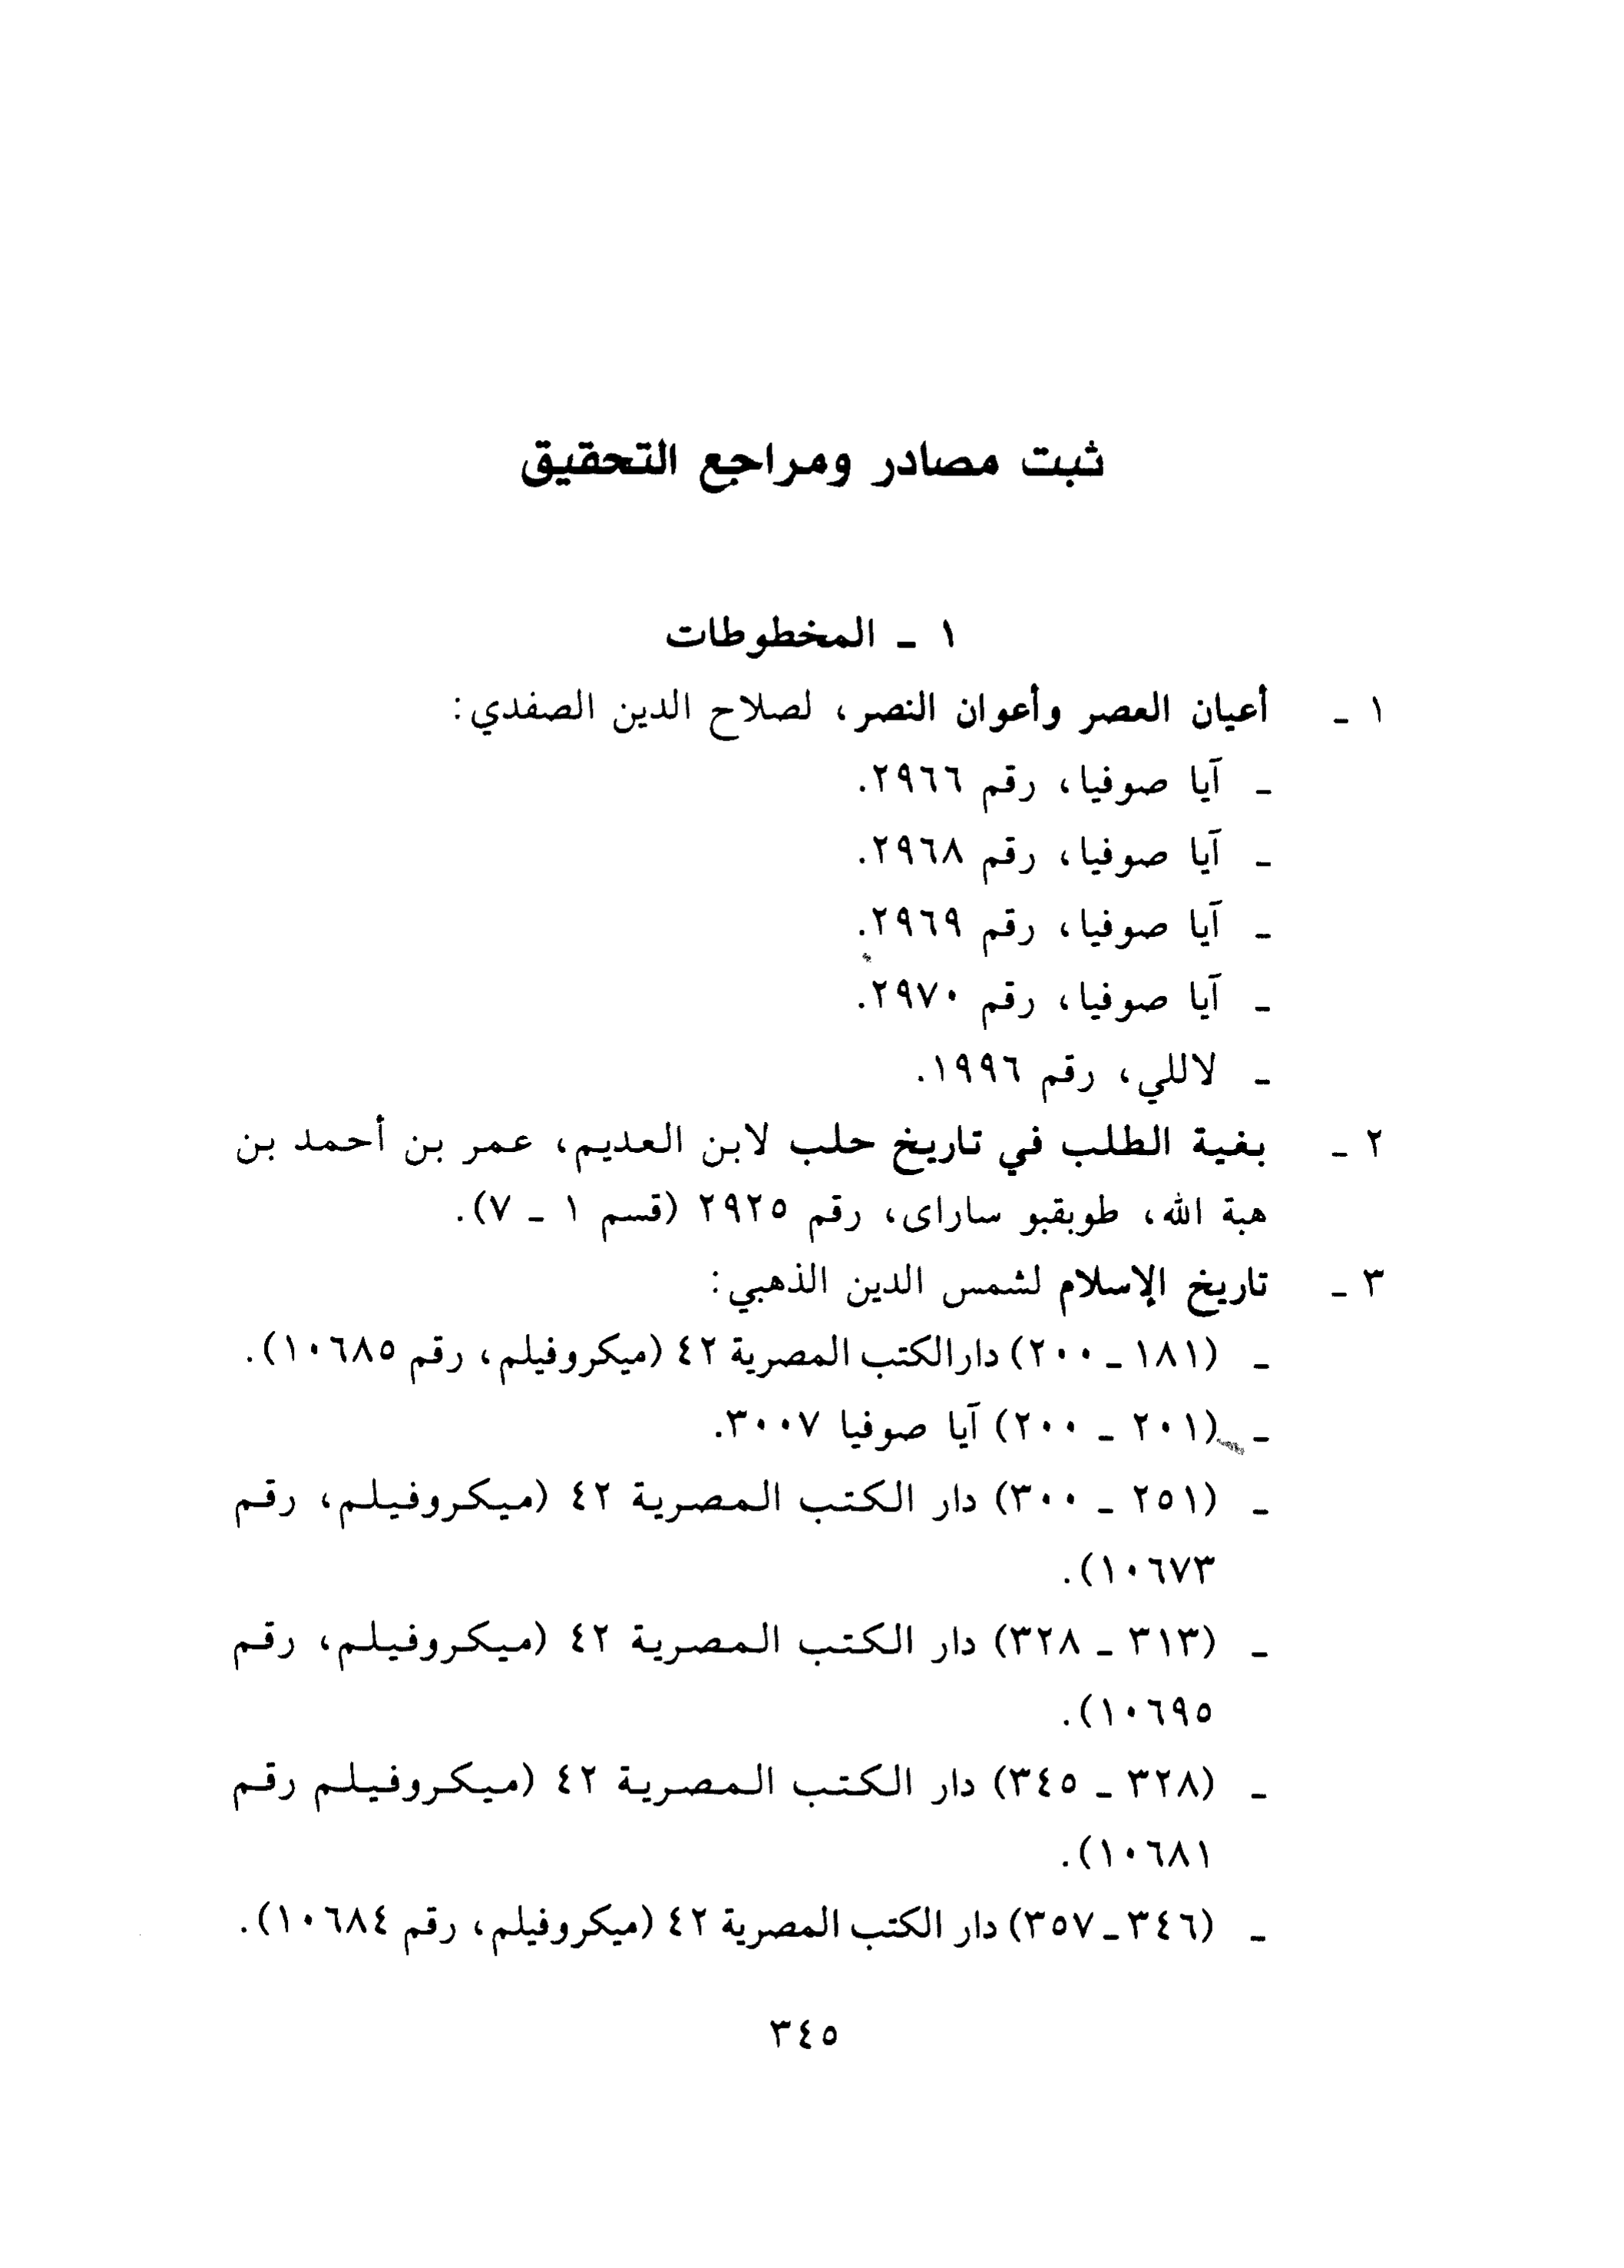 ثبت مصادر ومراجع التحقيق
١ ـ المخطوطات
١ ـ أعيان العصر وأعوان النصر، لصلاح الدين الصفدي:
ـ آيا صوفيا، رقم ٢٩٦٦.
ـ آيا صوفيا، رقم ٢٩٦٨.
ـ آيا صوفيا، رقم ٢٩٦٩.
ـ آيا صوفيا، رقم ٢٩٧٠.
ـ لاللي، رقم ١٩٩٦.
٢ ـ بغية الطلب في تاريخ حلب لابن العديم، عمر بن أحمد بن
هبة الله، طوبقبو ساراى، رقم ٢٩٢٥ (قسم ١ ـ ٧).
٣ ـ تاريخ الإسلام لشمس الدين الذهبي:
ـ (١٨١ ـ ٢٠٠) دارالكتب المصرية ٤٢ (ميكروفيلم، رقم ١٠٦٨٥).
ـ (٢٠١ ـ ٢٠٠) آيا صوفيا ٣٠٠٧.
ـ (٢٥١ ـ ٣٠٠) دار الكتب المصرية ٤٢ (ميكروفيلم، رقم
١٠٦٧٣).
ـ (٣١٣ ـ ٣٢٨) دار الكتب المصرية ٤٢ (ميكروفيلم، رقم
١٠٦٩٥).
ـ (٣٢٨ ـ ٣٤٥) دار الكتب المصرية ٤٢ (ميكروفيلم رقم
١٠٦٨١).
ـ (٣٤٦ـ٣٥٧) دار الكتب المصرية ٤٢ (ميكروفيلم، رقم ١٠٦٨٤).
٣٤٥